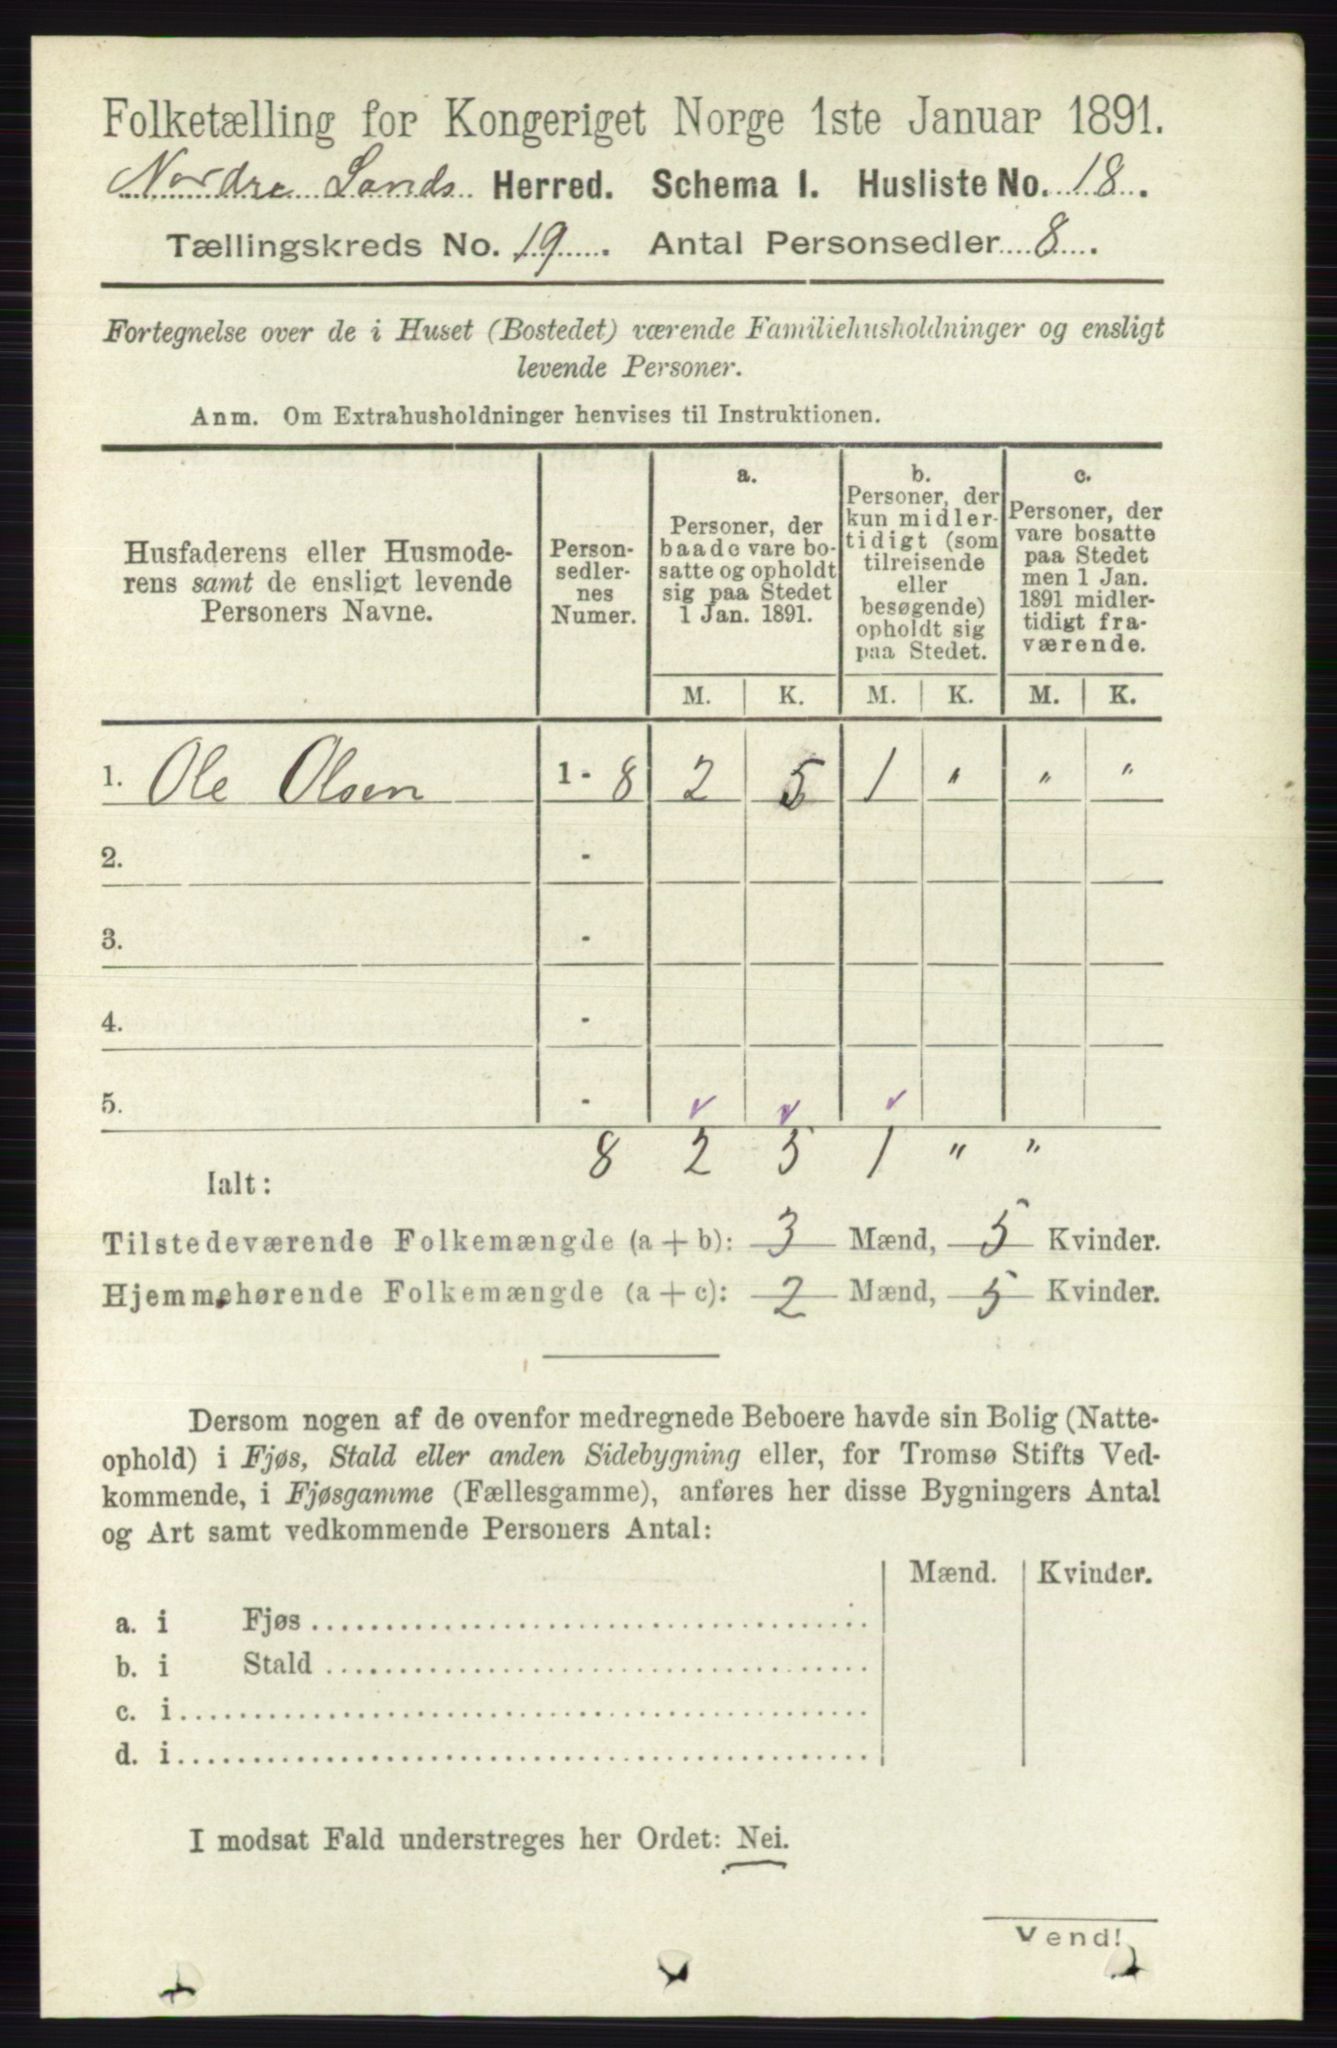 Folketælling for Kongeriget Norge 1ste Januar 1891.
Nordre Lands Herred. Schema I. Husliste No. 18.
Tællingskreds No. 19. Antal Personsedler 8.
Fortegnelse over de i Huset (Bostedet) værende Familiehusholdninger og ensligt
levende Personer.
Anm. Om Extrahusholdninger henvises til Instruktionen.
Husfaderens eller Husmode-
rens samt de ensligt levende
Personers Navne.
Person-
sedler-
nes
Numer.
a.
Personer, der
baade vare bo-
satte og opholdt
sig paa Stedet
1 Jan. 1891.
b.
Personer, der
kun midler-
tidigt (som
tilreisende
eller
besøgende)
opholdt sig
paa Stedet.
c.
Personer, der
vare bosatte
paa Stedet
men 1 Jan.
1891 midler-
tidigt fra-
værende.
M. K. M. K. M. K.
1. Ole Olsen 1 - 8 2 5 1 " " "
2. -
3. -
4. -
5. -
Ialt: 8 2 5 1 " "
Tilstedeværende Folkemængde (a + b): 3 Mænd, 5 Kvinder.
Hjemmehørende Folkemængde (a + c): 2 Mænd, 5 Kvinder.
Dersom nogen af de ovenfor medregnede Beboere havde sin Bolig (Natte-
ophold) i Fjøs, Stald eller anden Sidebygning eller, for Tromsø Stifts Ved-
kommende, i Fjøsgamme (Fællesgamme), anføres her disse Bygningers Antal
og Art samt vedkommende Personers Antal:
Mænd. Kvinder.
a. i Fjøs
b. i Stald
c. i
d. i
I modsat Fald understreges her Ordet: Nei.
Vend!